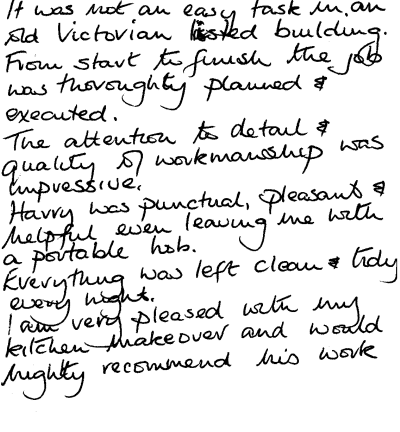 It was not an easy task in an
old Victorian listed building.
From start to finish the job
was thoroughly planned &
executed.
The attention to detail &
quality of workmanship was
impressive.
Harry was punctual, pleasant &
helpful even leaving me with
a portable hob.
Everything was left clean & tidy
every night.
I am very pleased with my
kitchen makeover and would
highly recommend his work